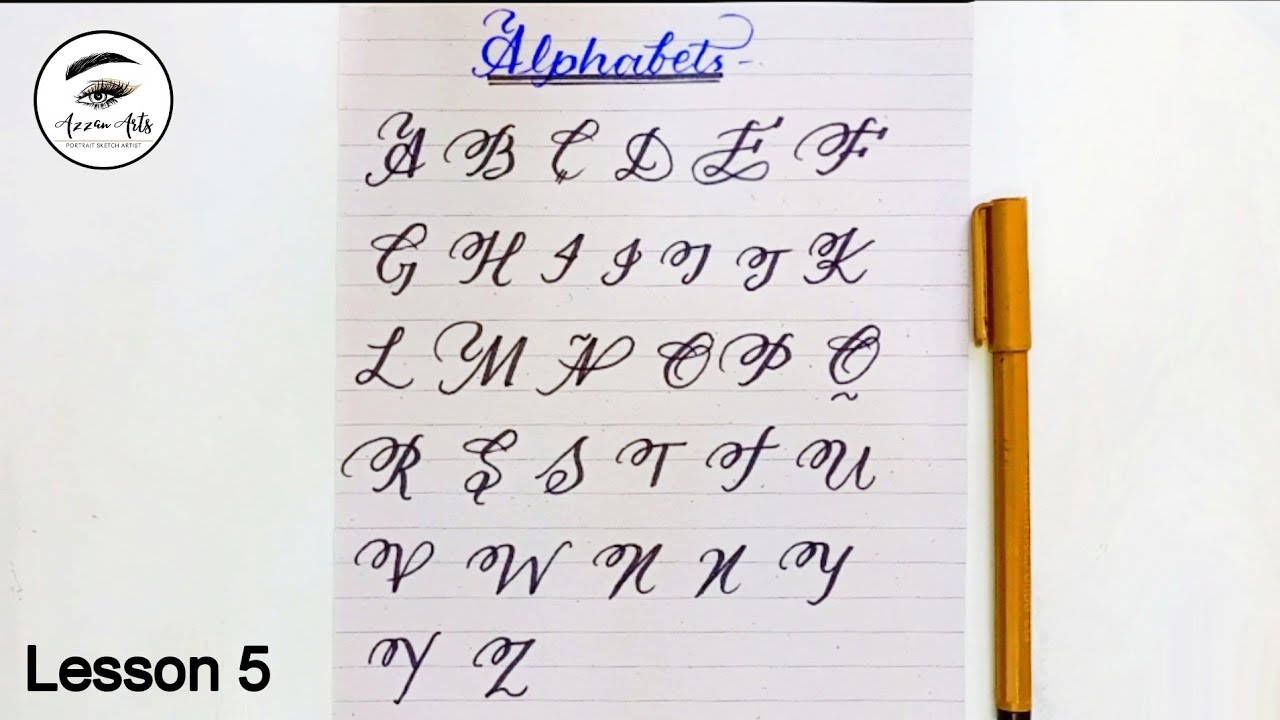 Alphabets
Azzan Arts
PORTRAIT SKETCH ARTIST
A B C D E F
G H I I J J K
L M N O P Q
R S S T T U
V W X X Y
Y Z
Lesson 5